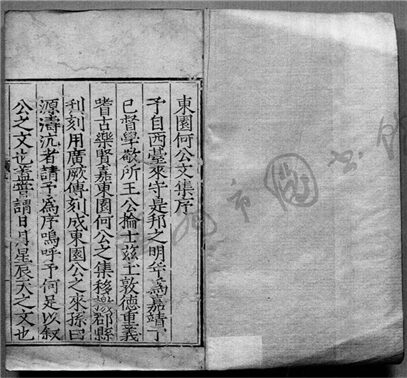 東園何公文集序
予自西臺來守是邦之明年為嘉靖丁
巳督學敬所王公掄士茲土敦德重義
嗜古樂賢嘉東園何公之集移檄郡縣
利刻用廣厥傳刻成東園公之來孫曰
源濤沆者請予為序嗚呼予何足以叙
公之文也蓋嘗謂日月星辰天之文也
市圖